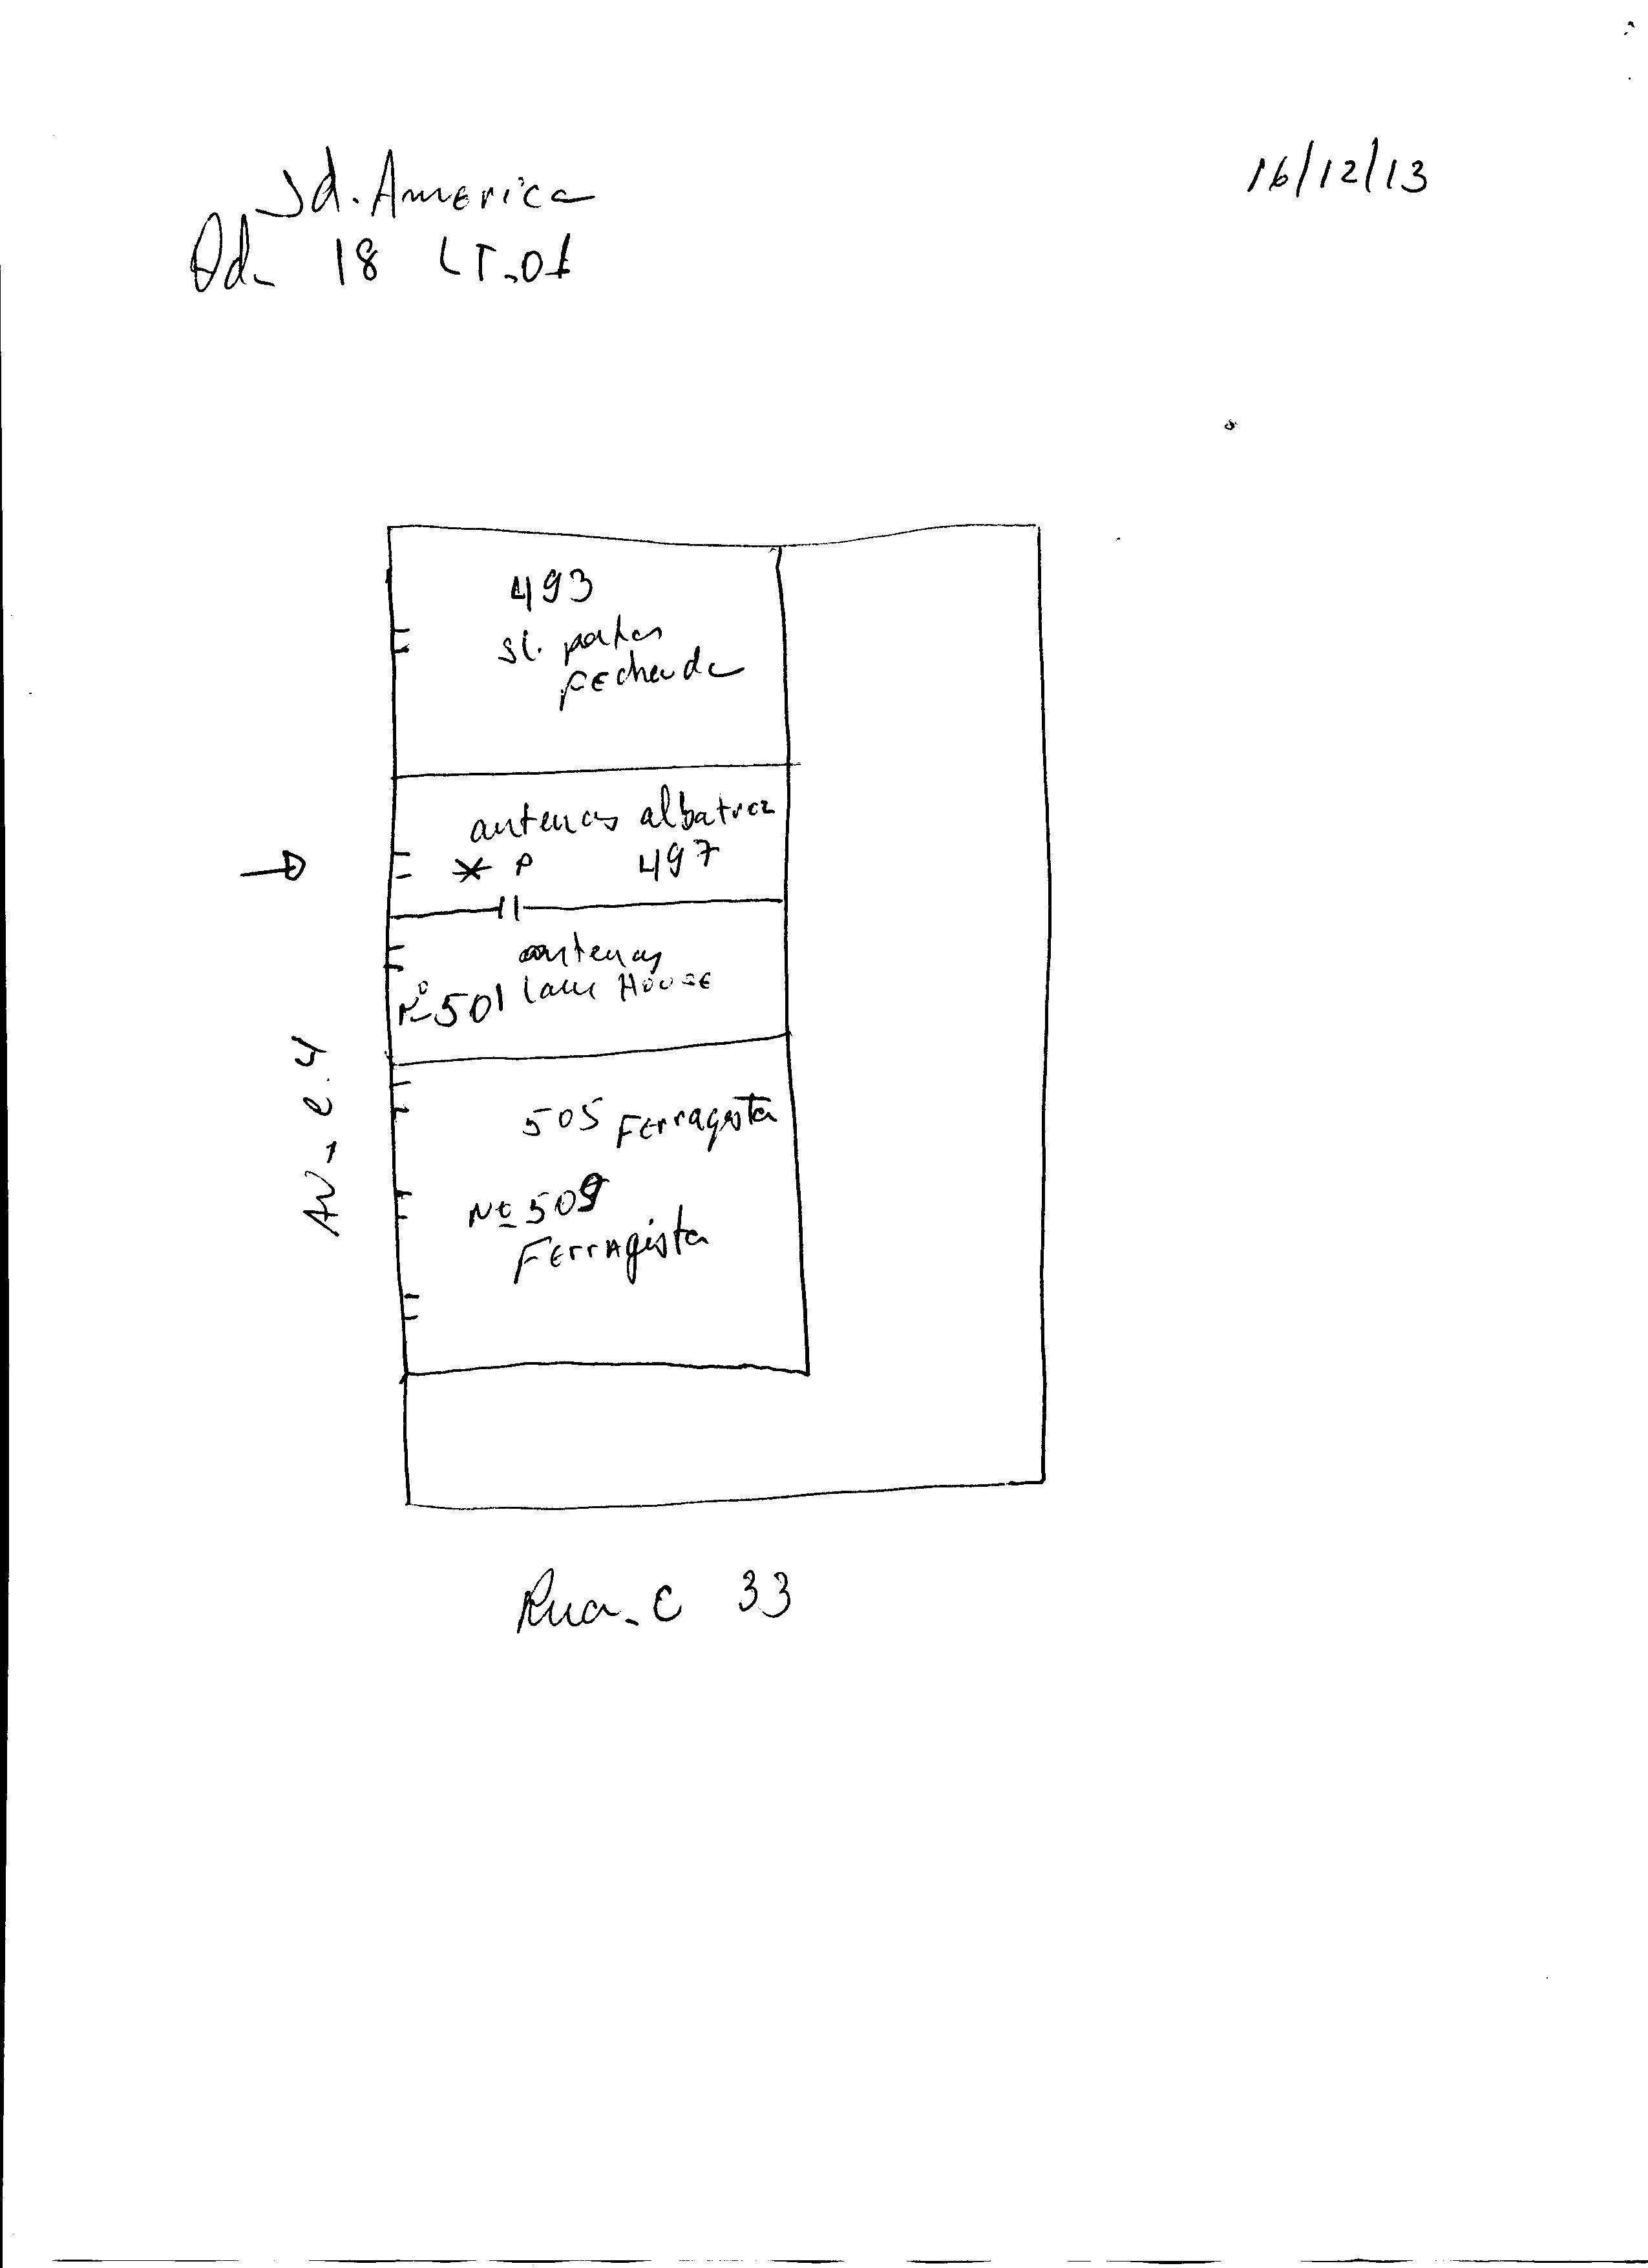 16/12/13
Jd. America
Qd. 18 LT. 01
493
sl. portas
Fechada
antenas albatroz
* P 497
antenas
Nº 501 House
505 Ferragista
Nº 509
Ferragista
Av. C. 4
Rua. C 33